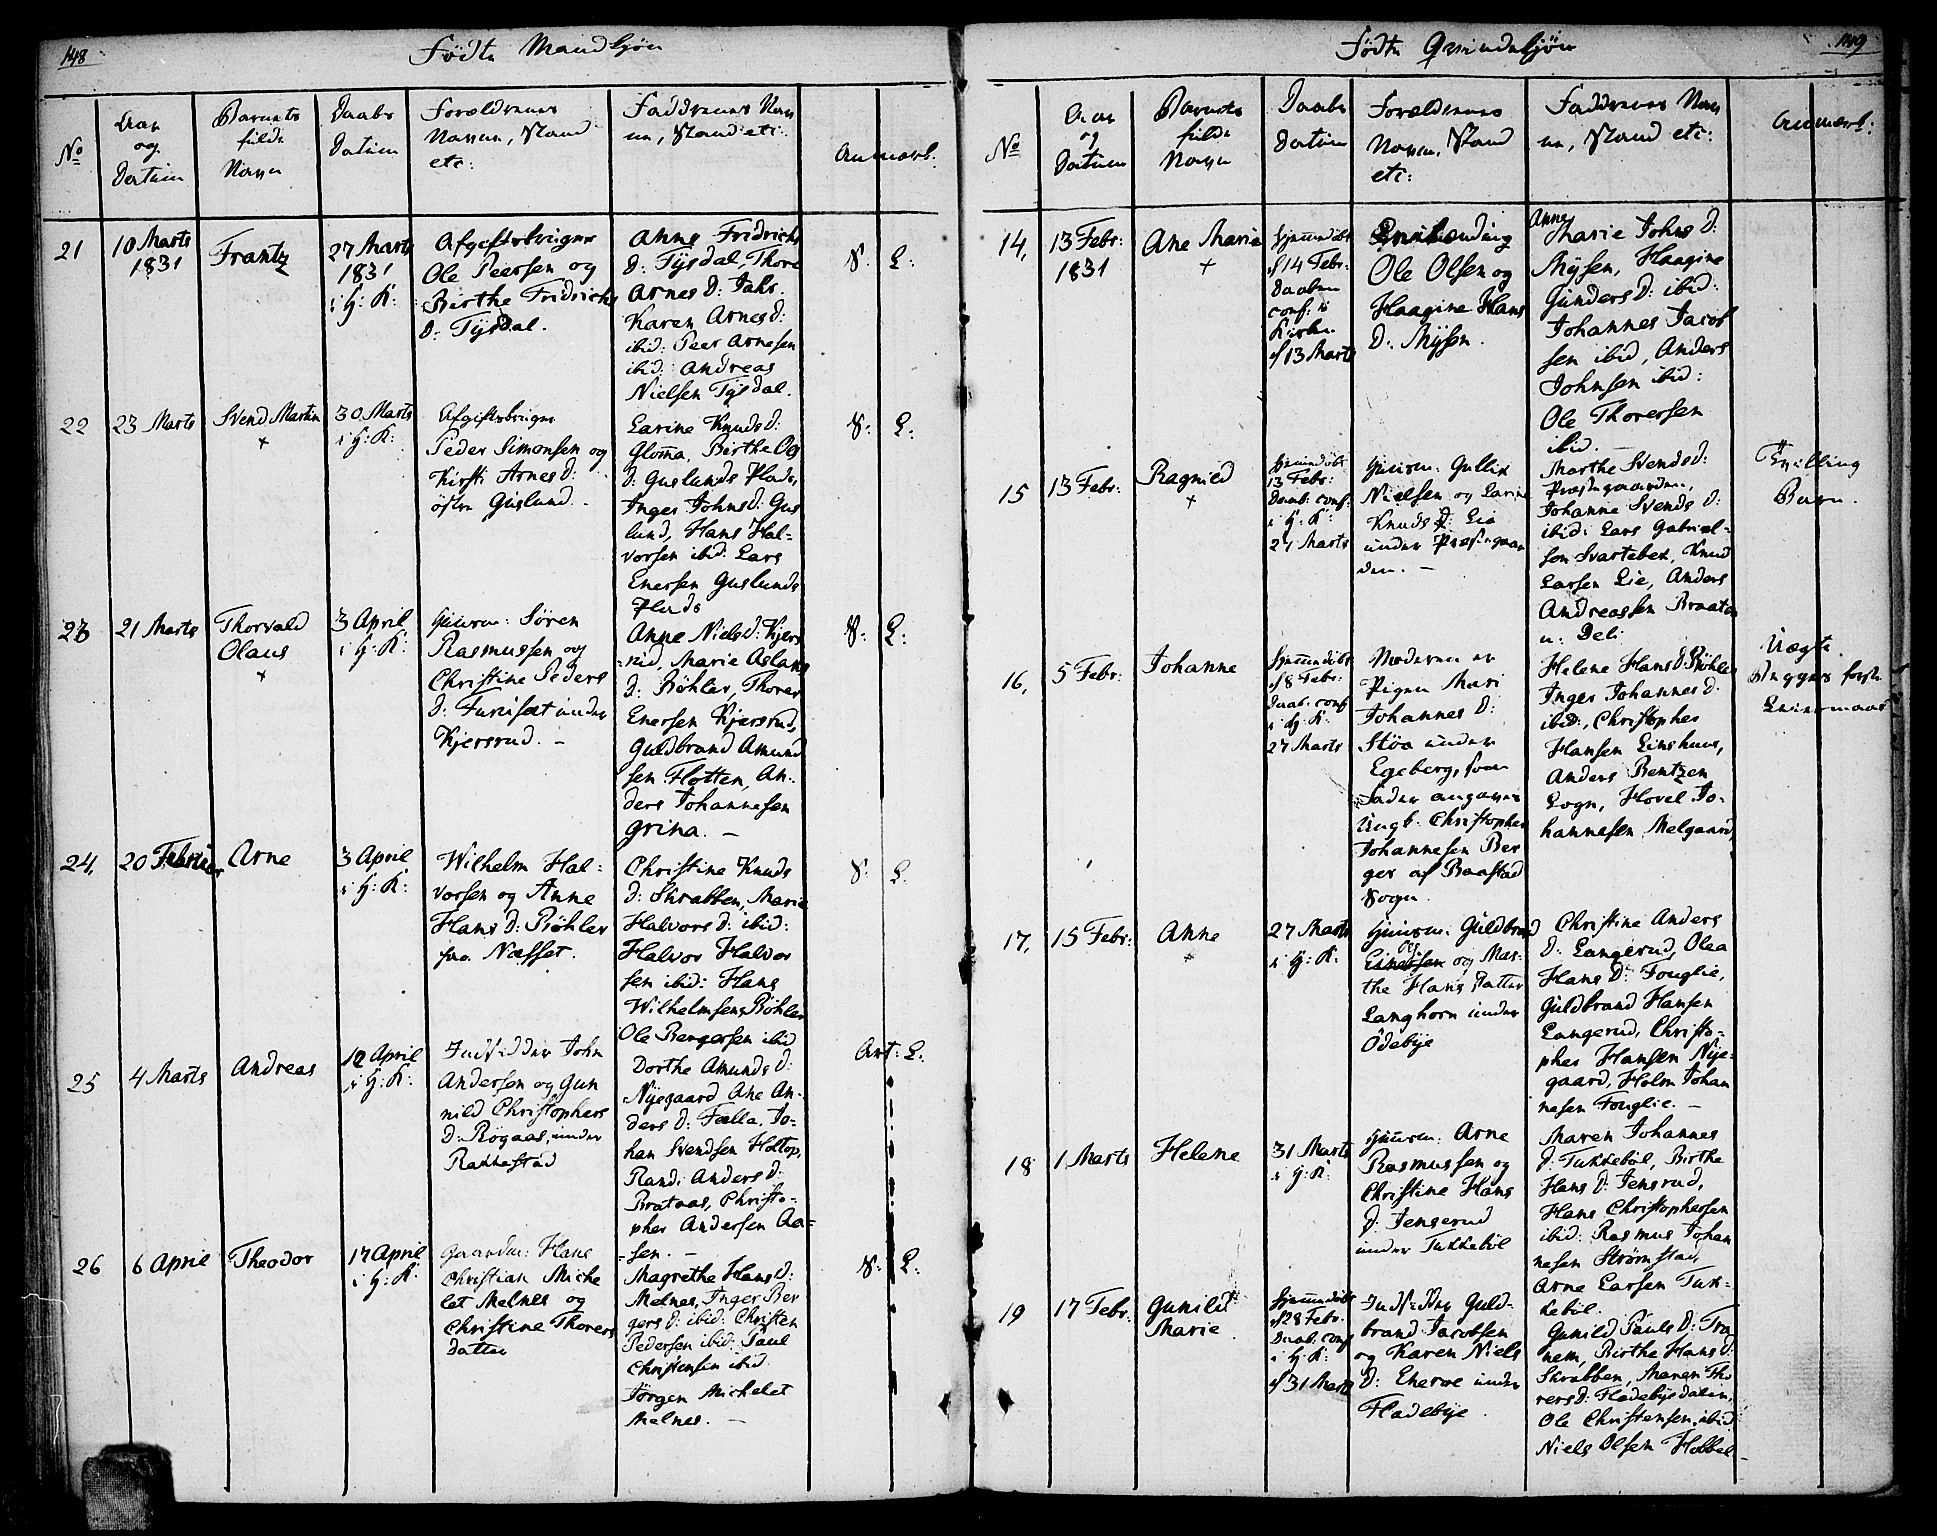 148
Födte Mandkjøn
No
Aar
og
Datum
Barnets
fulde
Navn
Daabs
Datum
Forældrenes
Navne, Stand
etc:
Faddrenes Nav
ne, Stand etc:
Anmærk:
21
10 Marts
1831
Frantz
27 Marts
1831
i H: K:
Afgiftsbruger
Ole Peersen og
Birthe Fridrichs
D: Tysdal.
Anne Fridrichs
D: Tysdal, Thore
Arnes D: Jahr.
Karen Arnesd:
ibid: Peer Arnesen
ibid: Andreas
Nielsen Tysdal.
S: L:
22
23 Marts
Svend Martin
+
30 Marts
i H: K:
Afgiftsbruger
Peder Simonsen og
Kirsti Arnesd:
østre Guslund.
Larine Knudsd:
Gloma, Birthe Ols
D: Guslunds Plads,
Inger Johnsd: Gus
lund, Hans Hal-
vorsen ibid: Lars
Enersen Guslunds
Plads
S: L:
23
21 Marts
Thorvald
Olaus
+
3 April
i H: K:
Huusm: Søren
Rasmussen og
Christine Peders
D: Furuset under
Kjersrud. –
Anne Nielsd: Kjers
rud, Marie Aslaks
D: Bøhler, Thorer
Enersen Kjersrud,
Guldbrand Amund
sen Flotten, An-
ders Johannesen
Grina. –
S: L:
24,
20 Februar
Arne
3 April
i H: K:
Wilhelm Hal-
vorsen og Anne
Hans D: Bøhler
fra Næsset.
Christine Knuds
D: Skrabben, Marie
Halvors D: ibid:
Halvor Halvor
sen ibid: Hans
Wilhelmsen Bøhler
Ole Bergersen ibid
S: L.
25
4 Marts
Andreas
10 April
i H: K:
Indsidder John
Andersen og Gun
nild Christophers
D: Røgaas, under
Rakkestad
Dorthe Amunds D:
Nyegaard Ane An-
ders D: Fælla, Jo-
han Svendsen Holtop,
Randi Anders D:
Brataas, Christo-
pher Andersen Aa-
sen. –
Art: L:
26
6 April
Theodor
17 April
i H: K:
Gaardm: Hans
Christian Miche
let Melnes og
Christine Thorers
datter
Magrethe Hans D:
Melnes, Inger Ber
gers D: ibid: Christen
Pedersen ibid: Paul
Christensen ibid.
Jörgen Michelet
Melnes. –
S: L:
149
Födte Qvindekjøn
No
Aar
og
Datum
Barnets
fulde
Navn
Daabs
Datum
Forældrenes
Navne, Stand
etc:
Faddrenes Nav
ne, Stand etc:
Anmærk:
14,
13 Febr:
1831
Ane Marie
+
Hjemmedøbt
d 14 Febr:
Daaben
conf: i
Kirken
d 13 Marts
Ole Olsen og
Haagine Hans
D: Mysen.
Anne
Marie Johns D:
Mysen, Haagine
Gunders D: ibid:
Johannes Jacob
sen ibid, Anders
Johnsen ibid:
Ole Thoresen
ibid. –
15
13 Febr:
Ragnild
+
Hjemmedøbt
13 Febr:
Daab. conf:
i H: K:
27 Marts
Huusm: Gullix
Nielsen og Larine
Knuds D: Lie
under Præstegaar
den. –
Marthe Svendsd:
Præstegaarden,
Johanne Svends D:
ibid: Lars Gabriel-
sen Svartebek, Knud
Larsen Lie, Anders
Andreassen Braaten
u: Deli
Tvilling
Barn.
16,
5 Febr:
Johanne
Hjemmedøbt
d 8 Febr:
Daab. conf
i H: K:
27 Marts
Moderen er
Pigen Mari
Johannes D:
Støa under
Egeberg, som
Fader angaves
Ungk. Christopher
Johannesen Ber
ger af Baastad
Sogn.
Helene Hans D: Bøhler
Inger Johannes D:
ibid:, Christopher
Hansen Linshuus,
Anders Bentzen
Sogn, Hovel Jo-
hannesen Melgaard
Uægte.
Begges første
Leiermaal
17,
15 Febr:
Anne
+
27 Marts
i H: K.
Huusm: Guldbrand
og Mar-
the Hans Datter
Langhorn under
Ödebye
Christine Anders
D: Langerud, Olea
Hans D: Fouglie,
Guldbrand Hansen
Langerud, Christo-
pher Hansen Nye-
gaard, Holm Johan
nesen Fouglie. –
18
1 Marts
Helene
31 Marts
i H: K
Huusm: Arne
Rasmussen og
Christine Hans
D: Jensrud
under Tukkebøl
Maren Johannes
D: Tukkebøl, Birthe
Hans D: Jensrud,
Hans Christophersen
ibid: Rasmus Johan
nesen Strømstad,
Arne Larsen Tuk-
kebøl.
19
17 Febr:
Gunild
Marie.
Hjemmedøbt
d 28 Febr.
Daab. conf
i H: K:
d 31 Marts
Indsidder Guld-
brand Jacobsen
og Karen Niels
D: Enerve under
Fladebye
Gunild Pauls D: Tra
nem, Birthe Hans D:
Skrabben, Maren Tho
rers D: Fladebyedalen,
Ole Christensen, ibid
Niels Olsen Habbel